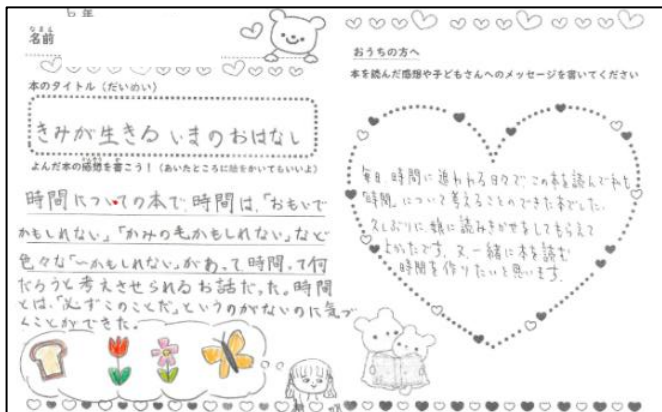 6年
なまえ
名前
本のタイトル（だいめい）
きみが生きる いまのおはなし
よんだ本の感想を書こう！（あいたところに絵をかいてもいいよ）
時間についての本で、時間は、「おもいで
かもしれない」「かみの毛かもしれない」など
色々な「〜かもしれない」があって、時間って何
だろうと考えさせられるお話だった。時間
とは、「必ずこのことだ」というのがないのに気づ
くことができた。
おうちの方へ
本を読んだ感想や子どもさんへのメッセージを書いてください
毎日時間に追われる日々で、この本を読んで私も
「時間」について考えることのできた本でした。
久しぶりに、娘に読みきかせをしてもらえて
よかったです。又、一緒に本を読む
時間を作りたいと思います。